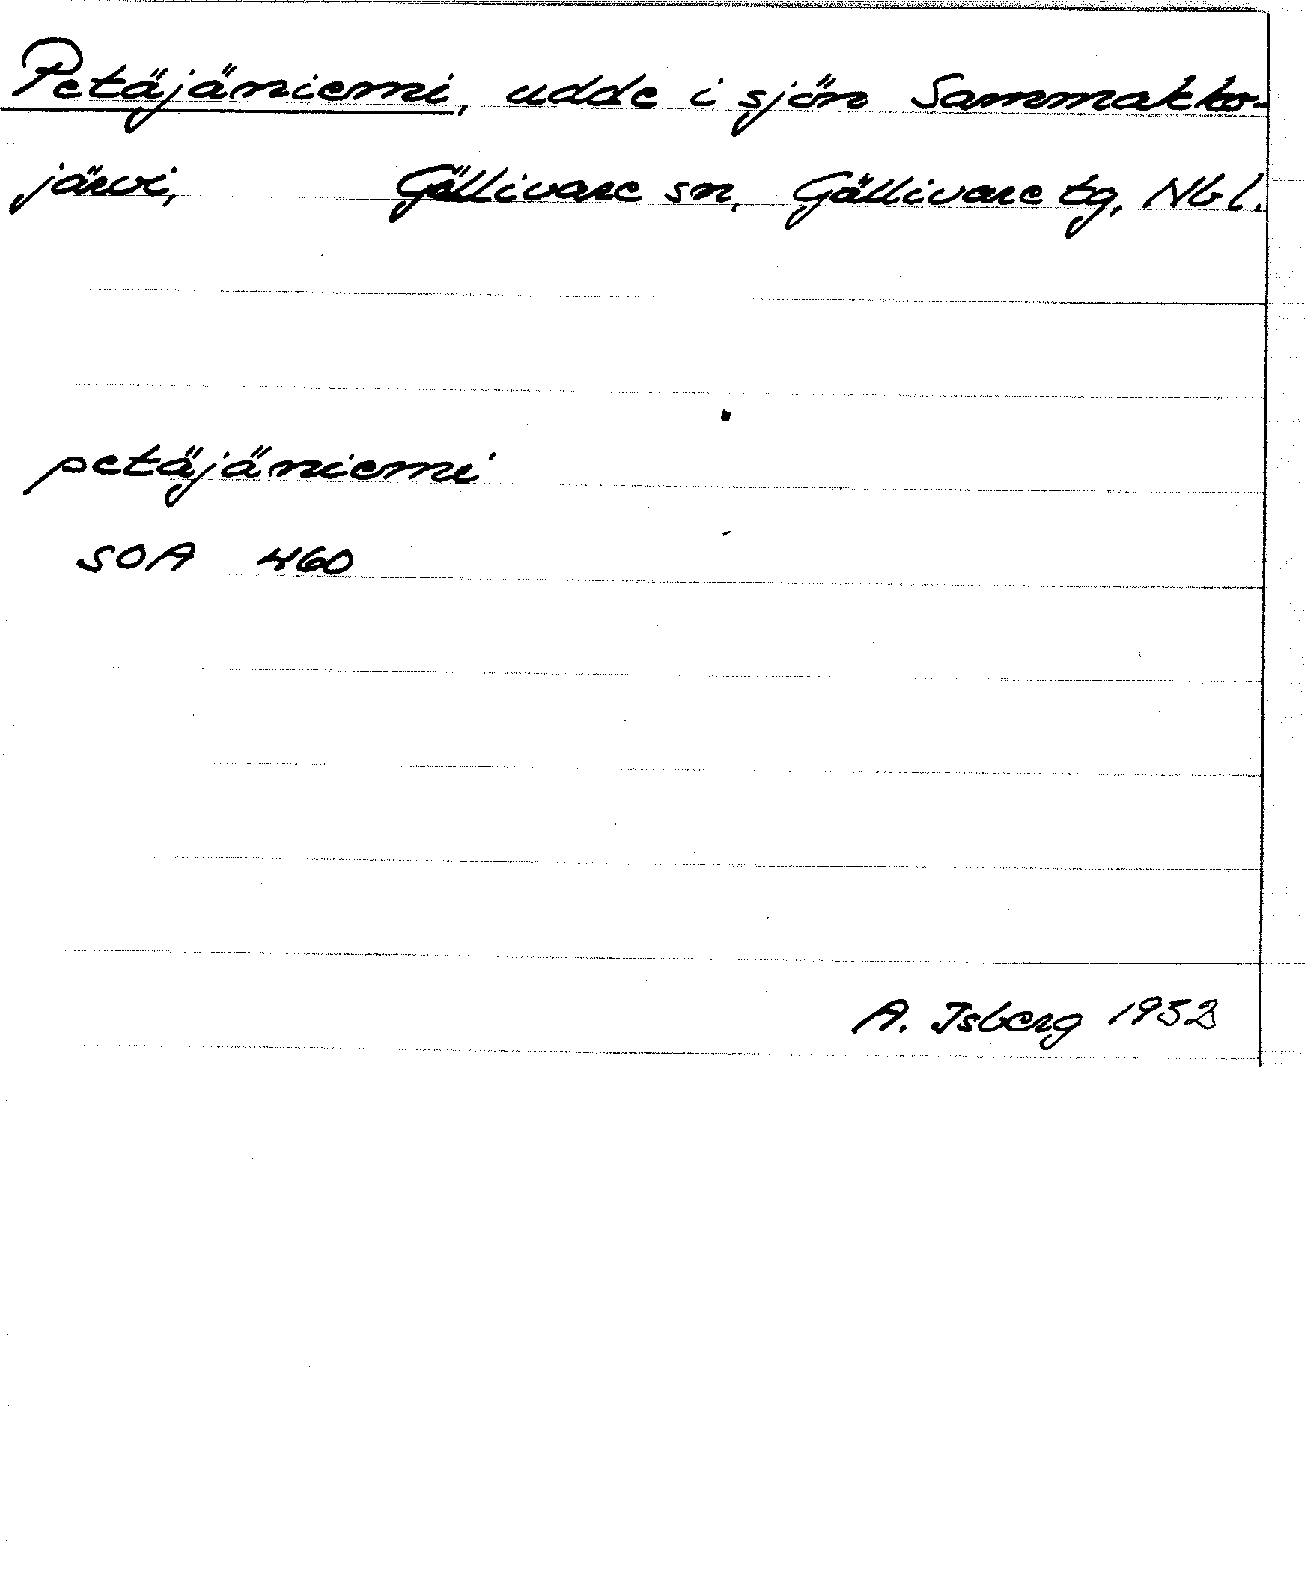 Petäjäniemi, udde i sjön Sammakko-
järvi, Gällivare sn, Gällivare tg, Nb l.
petäjäniemi
SOA 460
A. Isberg 1952